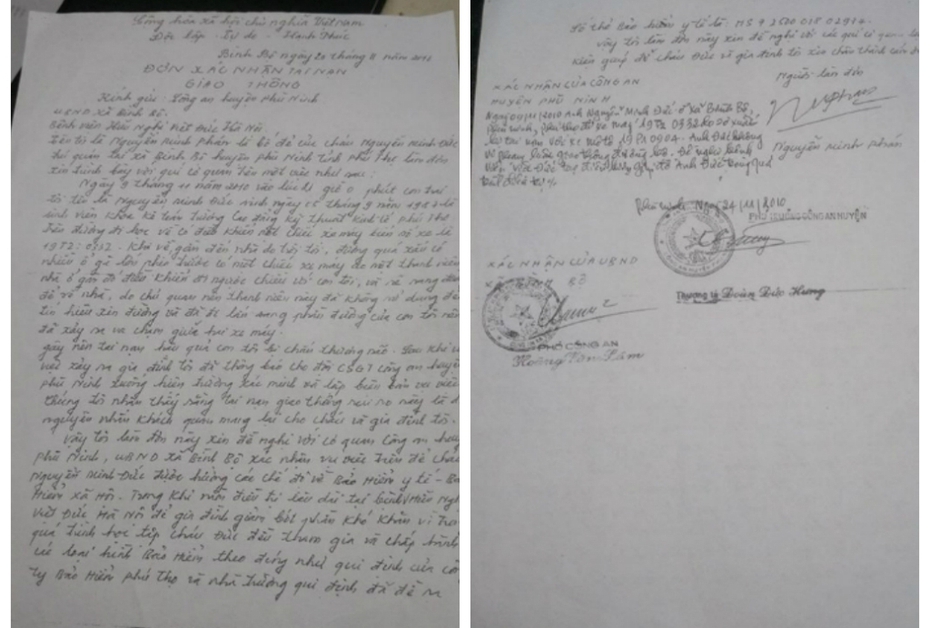 Cộng hòa xã hội chủ nghĩa Việt nam
Độc lập - Tự do - Hạnh Phúc
Bình Bộ ngày 20 tháng 11 năm
ĐƠN XÁC NHẬN TAI NẠN
GIAO THÔNG
Kính gửi: Công an huyện Phù Ninh
UBND xã Bình Bộ
Bệnh viện Hữu Nghị Việt Đức Hà Nội
Tên tôi là Nguyễn minh Phán là bố đẻ của cháu Nguyễn minh Đức
quán tại xã Bình Bộ huyện Phù Ninh Tỉnh Phú Thọ làm đơn
xin trình bày với quí cơ quan một việc như sau:
Ngày 9 tháng 11 năm 2010 vào lúc giờ 0 phút con trai
tôi tên là Nguyễn minh Đức sinh ngày 15 tháng 9 năm
sinh viên khoa kế toán trường Cao đẳng kỹ thuật kinh tế Phú Thọ
trên đường đi học về có điều khiển một chiếc xe máy biển số xe là
19F2: 0932. Khi về gần đến nhà do trời tối, đường quá xấu có
nhiều ổ gà lồi phía trước có một chiếc xe máy do một thanh niên
nhà ở gần đó điều khiển đi ngược chiều với con tôi, và rẽ sang đường
để về nhà, do chủ quan nên thanh niên này đã không sử dụng đèn
tín hiệu xin đường và đã đi lấn sang phần đường của con tôi nên
đã xảy ra va chạm giữa hai xe máy.
gây nên tai nạn hậu quả con tôi bị chấn thương não. Sau khi
việc xảy ra gia đình tôi đã thông báo cho đội CSGT công an huyện
Phù Ninh xuống hiện trường xác minh và lập biên bản vụ việc
chúng tôi nhận thấy rằng tai nạn giao thông rủi ro này là do
nguyên nhân khách quan mang lại cho cháu và gia đình tôi.
Vậy tôi làm đơn này xin đề nghị với cơ quan Công an huyện
Phù Ninh, UBND xã Bình Bộ xác nhận vụ việc trên để cháu
Nguyễn minh Đức được hưởng các chế độ về Bảo Hiểm y tế - Bảo
Hiểm xã Hội. Trong khi nằm điều trị lâu dài tại bệnh viện Hữu Nghị
Việt Đức Hà Nội để gia đình giảm bớt phần khó khăn vì trong
quá trình học tập cháu Đức đều tham gia và chấp hành
các loại hình Bảo Hiểm theo đúng như qui định của công
ty Bảo Hiểm phú thọ và nhà trường qui định đã đề ra
Số thẻ Bảo hiểm y tế là. MS 7 2500 018 02914.
Vậy tôi làm đơn này xin đề nghị với các quí cơ quan
kiện giúp đỡ cháu Đức và gia đình tôi xin chân thành cảm ơn
XÁC NHẬN CỦA CÔNG AN
HUYỆN PHÙ NINH
Người làm đơn
Ngày 09/11/2010 Anh Nguyễn Minh Đức ở xã Bình Bộ,
Phù Ninh, Phú Thọ đi xe máy 19F2 0932
tai nạn với xe mô tô Anh Đức không
vi phạm luật giao thông đường bộ. Đề nghị bệnh
viện Việt Đức
Nguyễn minh phán
Phù Ninh, Ngày 24/11/2010
PHÓ TRƯỞNG CÔNG AN HUYỆN
XÁC NHẬN CỦA UBND
BỘ
Thượng tá Đoàn Đức Hưng
PHÓ CÔNG AN
Hoàng Văn Lâm